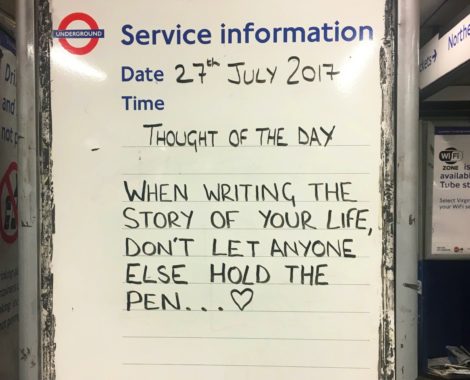 UNDERGROUND
Service information
Date 27th JULY 2017
Time
THOUGHT OF THE DAY
WHEN WRITING THE
STORY OF YOUR LIFE,
DON'T LET ANYONE
ELSE HOLD THE
PEN...♡
Northe
WiFi
ZONE is
available
Tube st
Select Virgin
your WiFi se
Dri
and
not